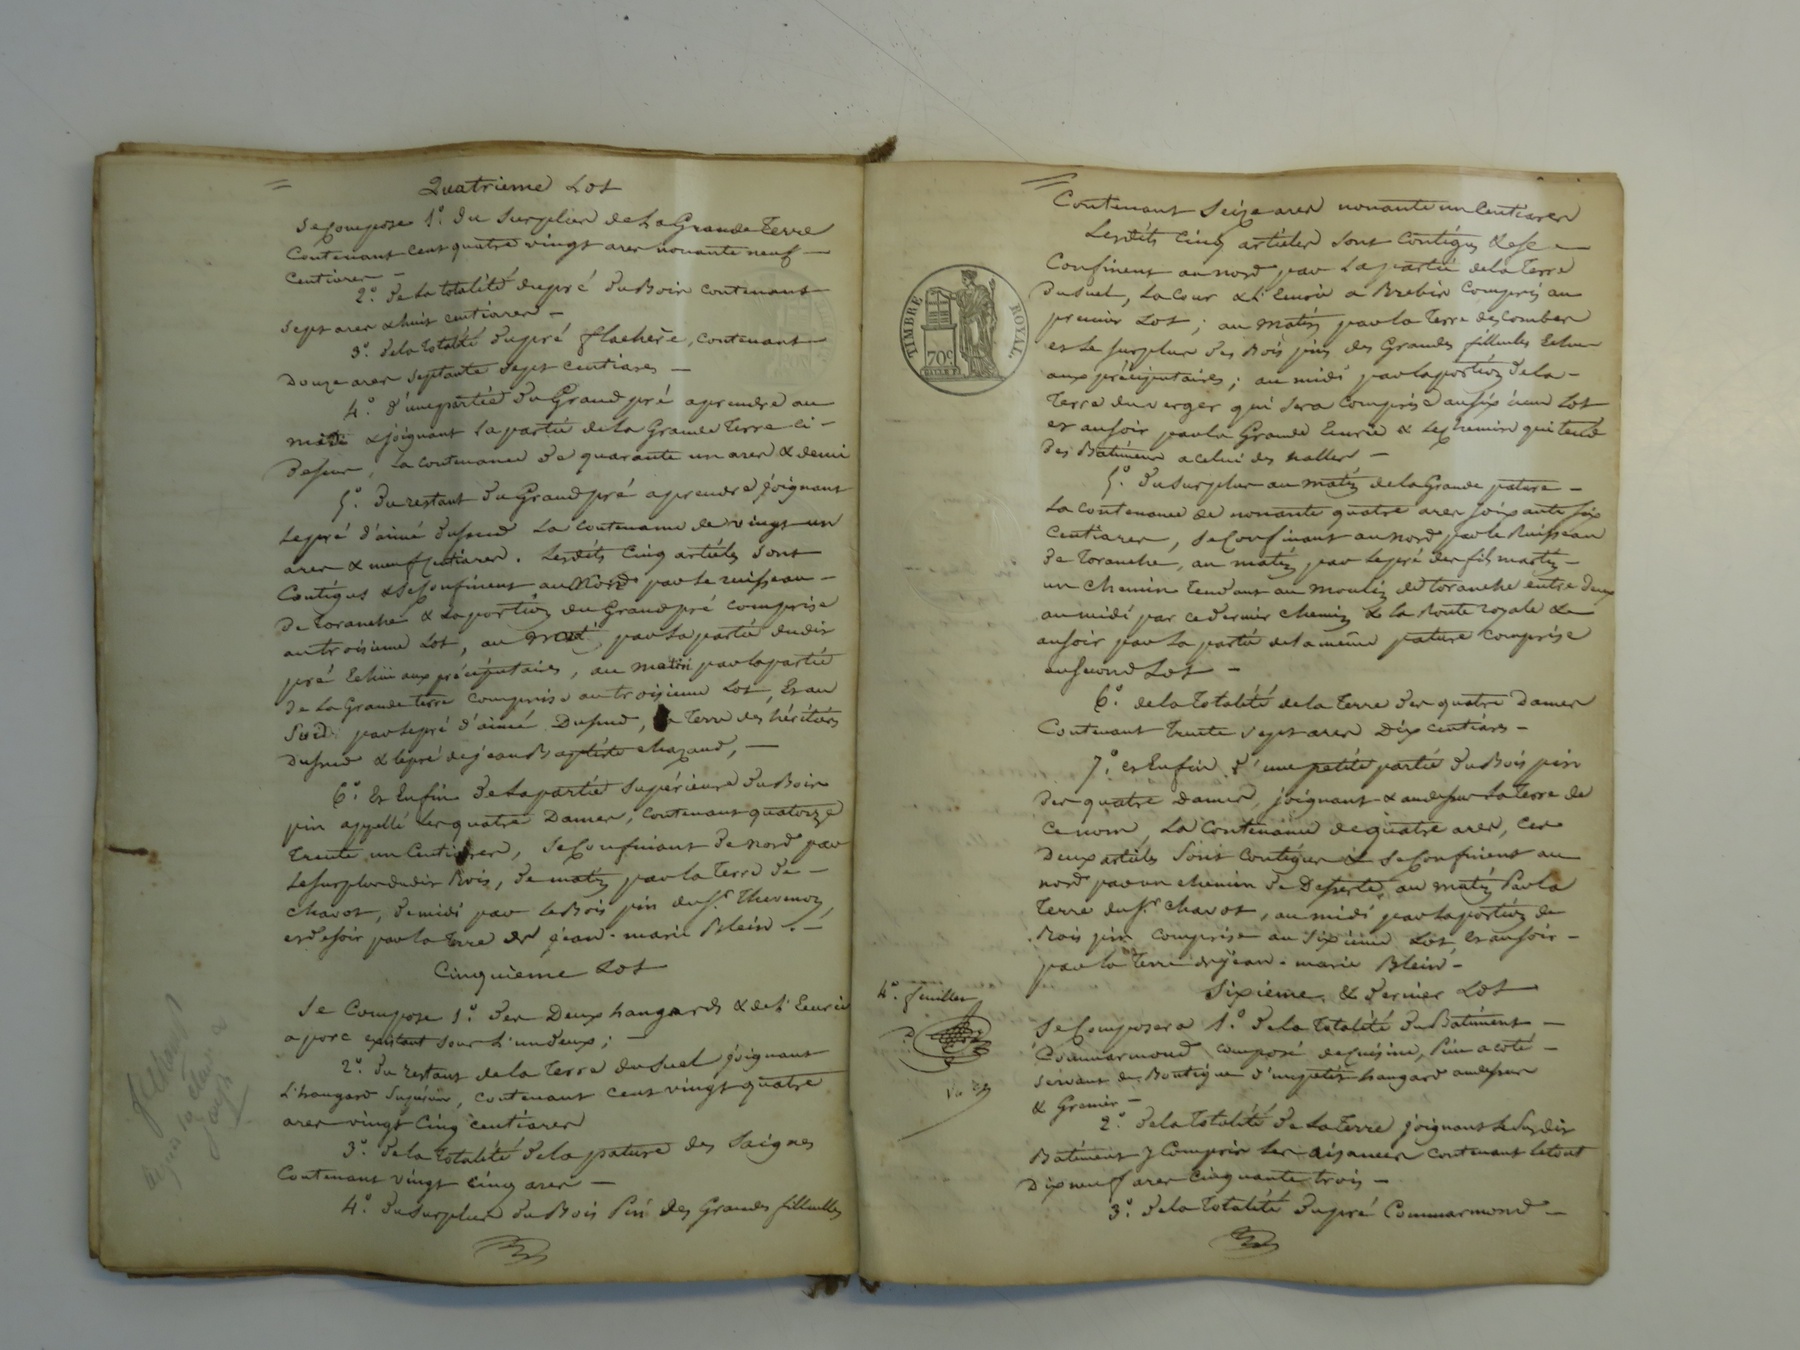 Quatrieme Lot
se Compose 1.º du surplus de La Grande Terre
Contenant cent quatre vingt ares nonante neuf —
Centiares —
2.º de La totalité du pré du Bois contenant
sept ares & huit centiares —
3.º de la totalité du pré flachère, contenant
Douze ares septante sept centiares —
4.º d'une partie du Grand pré a prendre au
midi & joignant la partie de la Grande Terre ci -
dessus, la contenance de quarante un ares & demi
5.º du restant du Grand pré a prendre joignant
le pré d'aimé Dufund La contenance de vingt un
ares & neuf centiares. Lesdits cinq articles sont
Contigus & se Confinent au Nord par le ruisseau -
de toranche & la portion du Grand pré comprise
au troisieme Lot, au par la partie dudit
pré Echue aux préciputaires, au matin par la partie
de La Grande terre comprise au troisieme Lot, Et au
par le pré d'aimé Dufund, la Terre des héritiers
Dufund & le pré de jean Baptiste chazaud, —
6.º Et Enfin de La partie Supérieure du Bois
pin appellé des quatre Dames, contenant quatorze
Trente un Centiares, se Confinant de nord par
Le surplus dudit Bois, de matin par la Terre de —
chavot, de midi par le Bois pin du s.r Thevenon,
et de soir par la terre de jean-marie Blein. —
Cinquieme Lot
Se Compose 1.º des Deux hangards & de L'Ecurie
a porc existant sous L'un d'eux ; —
2.º du restant de la Terre du suel joignant
L'hangard Supérieur, contenant cent vingt quatre
ares vingt cinq centiares
3.º de la totalité de la pature des Saignes
Contenant vingt cinq ares —
4.º du surplus du Bois Pin des Grandes filluelles
Contenant seize ares nonante un Centiares
Lesdits cinq articles sont Contigus & se —
Confinent au nord par La partie de la Terre
du suel, la Cour & L'Ecurie a Brebis Compris au
premier Lot ; au matin par la Terre des Combes
et le surplus des Bois pin des Grandes filluelles Echu
aux préciputaires ; au midi par la portion de la —
Terre du verger qui sera comprise au sixieme Lot
et au soir par la Grande Ecurie & le Chemin qui tend
des Batimens a celui des halles —
5.º du surplus au matin de la Grande pature —
La contenance de nonante quatre ares soixante six
Centiares, se Confinant au nord par le Ruisseau
de Toranche, au matin par le pré des fils martin —
un chemin tendant au moulin de toranche entre deux
au midi par ce dernier chemin & la Route royale &
au soir par la partie de la même pature comprise
au second Lot —
6.º de la totalité de la Terre des quatre Dames
Contenant trente sept ares Dix centiares —
7.º et Enfin d'une petite partie du Bois pin
des quatre Dames, joignant & au dessus La Terre de
ce nom, La Contenance de quatre ares, ces
Deux articles sont Contigus & se Confinent au
nord par un chemin de Desserte, au matin Par la
Terre du s.r chavot, au midi par la portion de
Bois pin comprise au sixieme Lot, et au soir —
par la Terre de jean-marie Blein —
Sixieme & dernier Lot
4.e feuillet
Se Composera 1.º de la totalité du Batiment —
Commarmond composé de Cuisine, Piece a coté —
servant de Boutique d'un petit hangard au dessus
& Grenier —
2.º de la totalité de La Terre joignant le susdit
Batiment y Compris les aisances contenant le tout
Dix neuf ares cinquante trois —
3.º de la totalité du pré Commarmond —
TIMBRE ROYAL.
70c